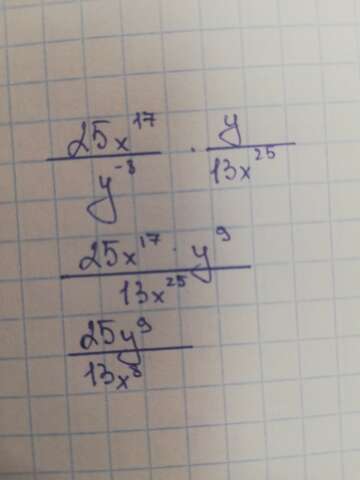 25x¹⁷/y⁻⁸ · y/13x²⁵
25x¹⁷ · y⁹/13x²⁵
25y⁹/13x⁸